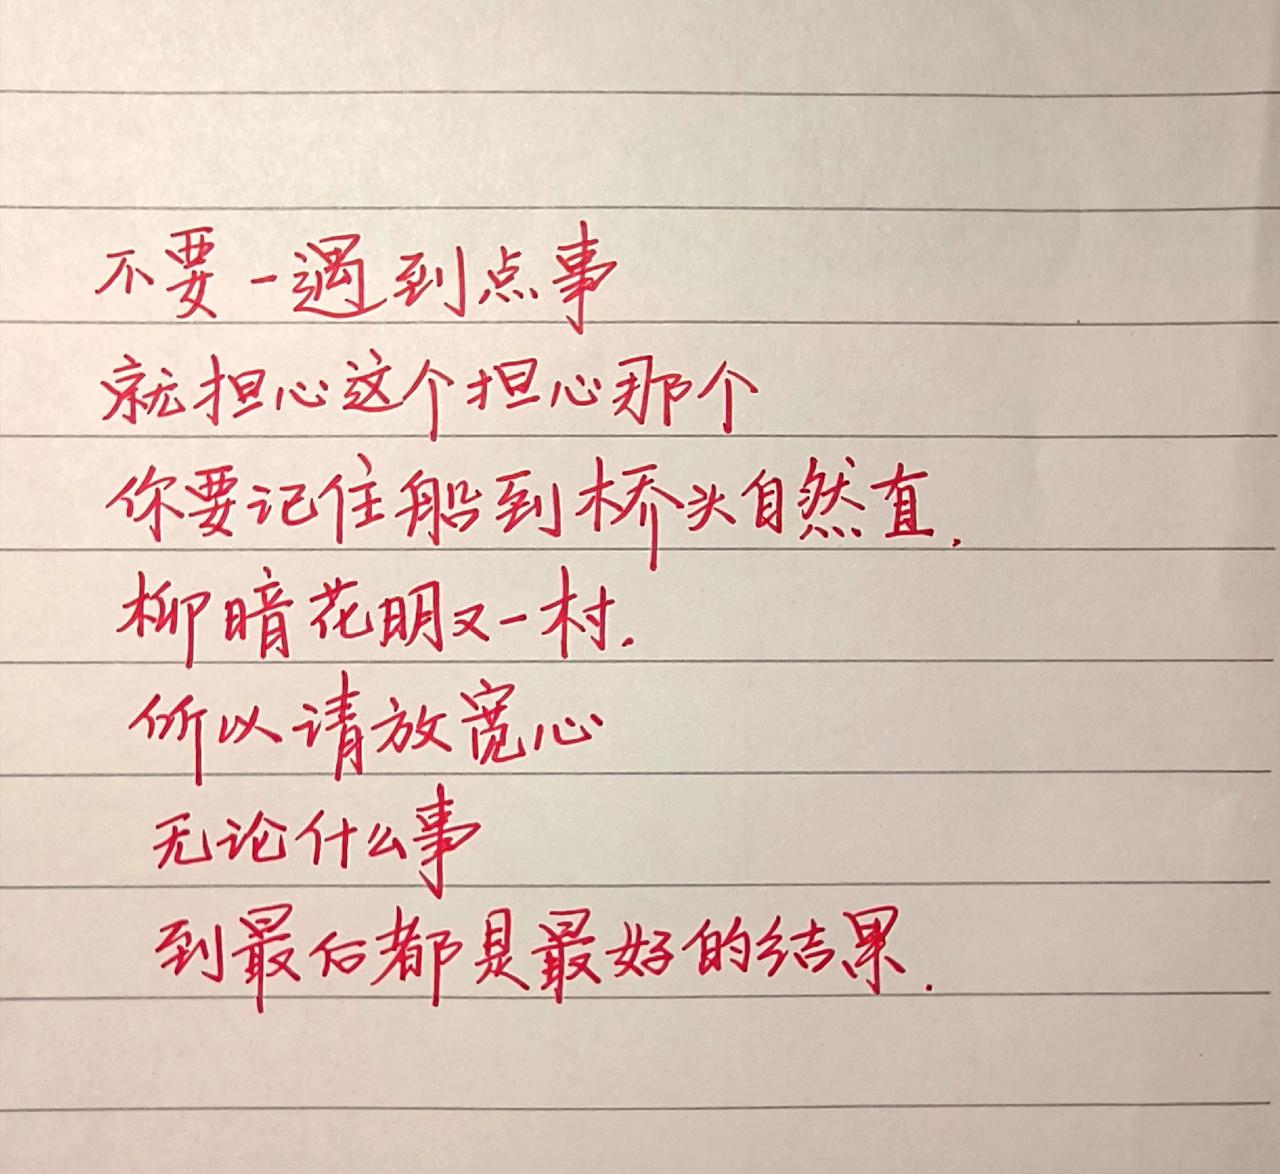 不要一遇到点事
就担心这个担心那个
你要记住船到桥头自然直.
柳暗花明又一村.
所以请放宽心
无论什么事
到最后都是最好的结果.